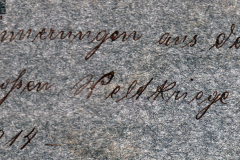 nnerungen aus de
oßen Weltkriege
914 –